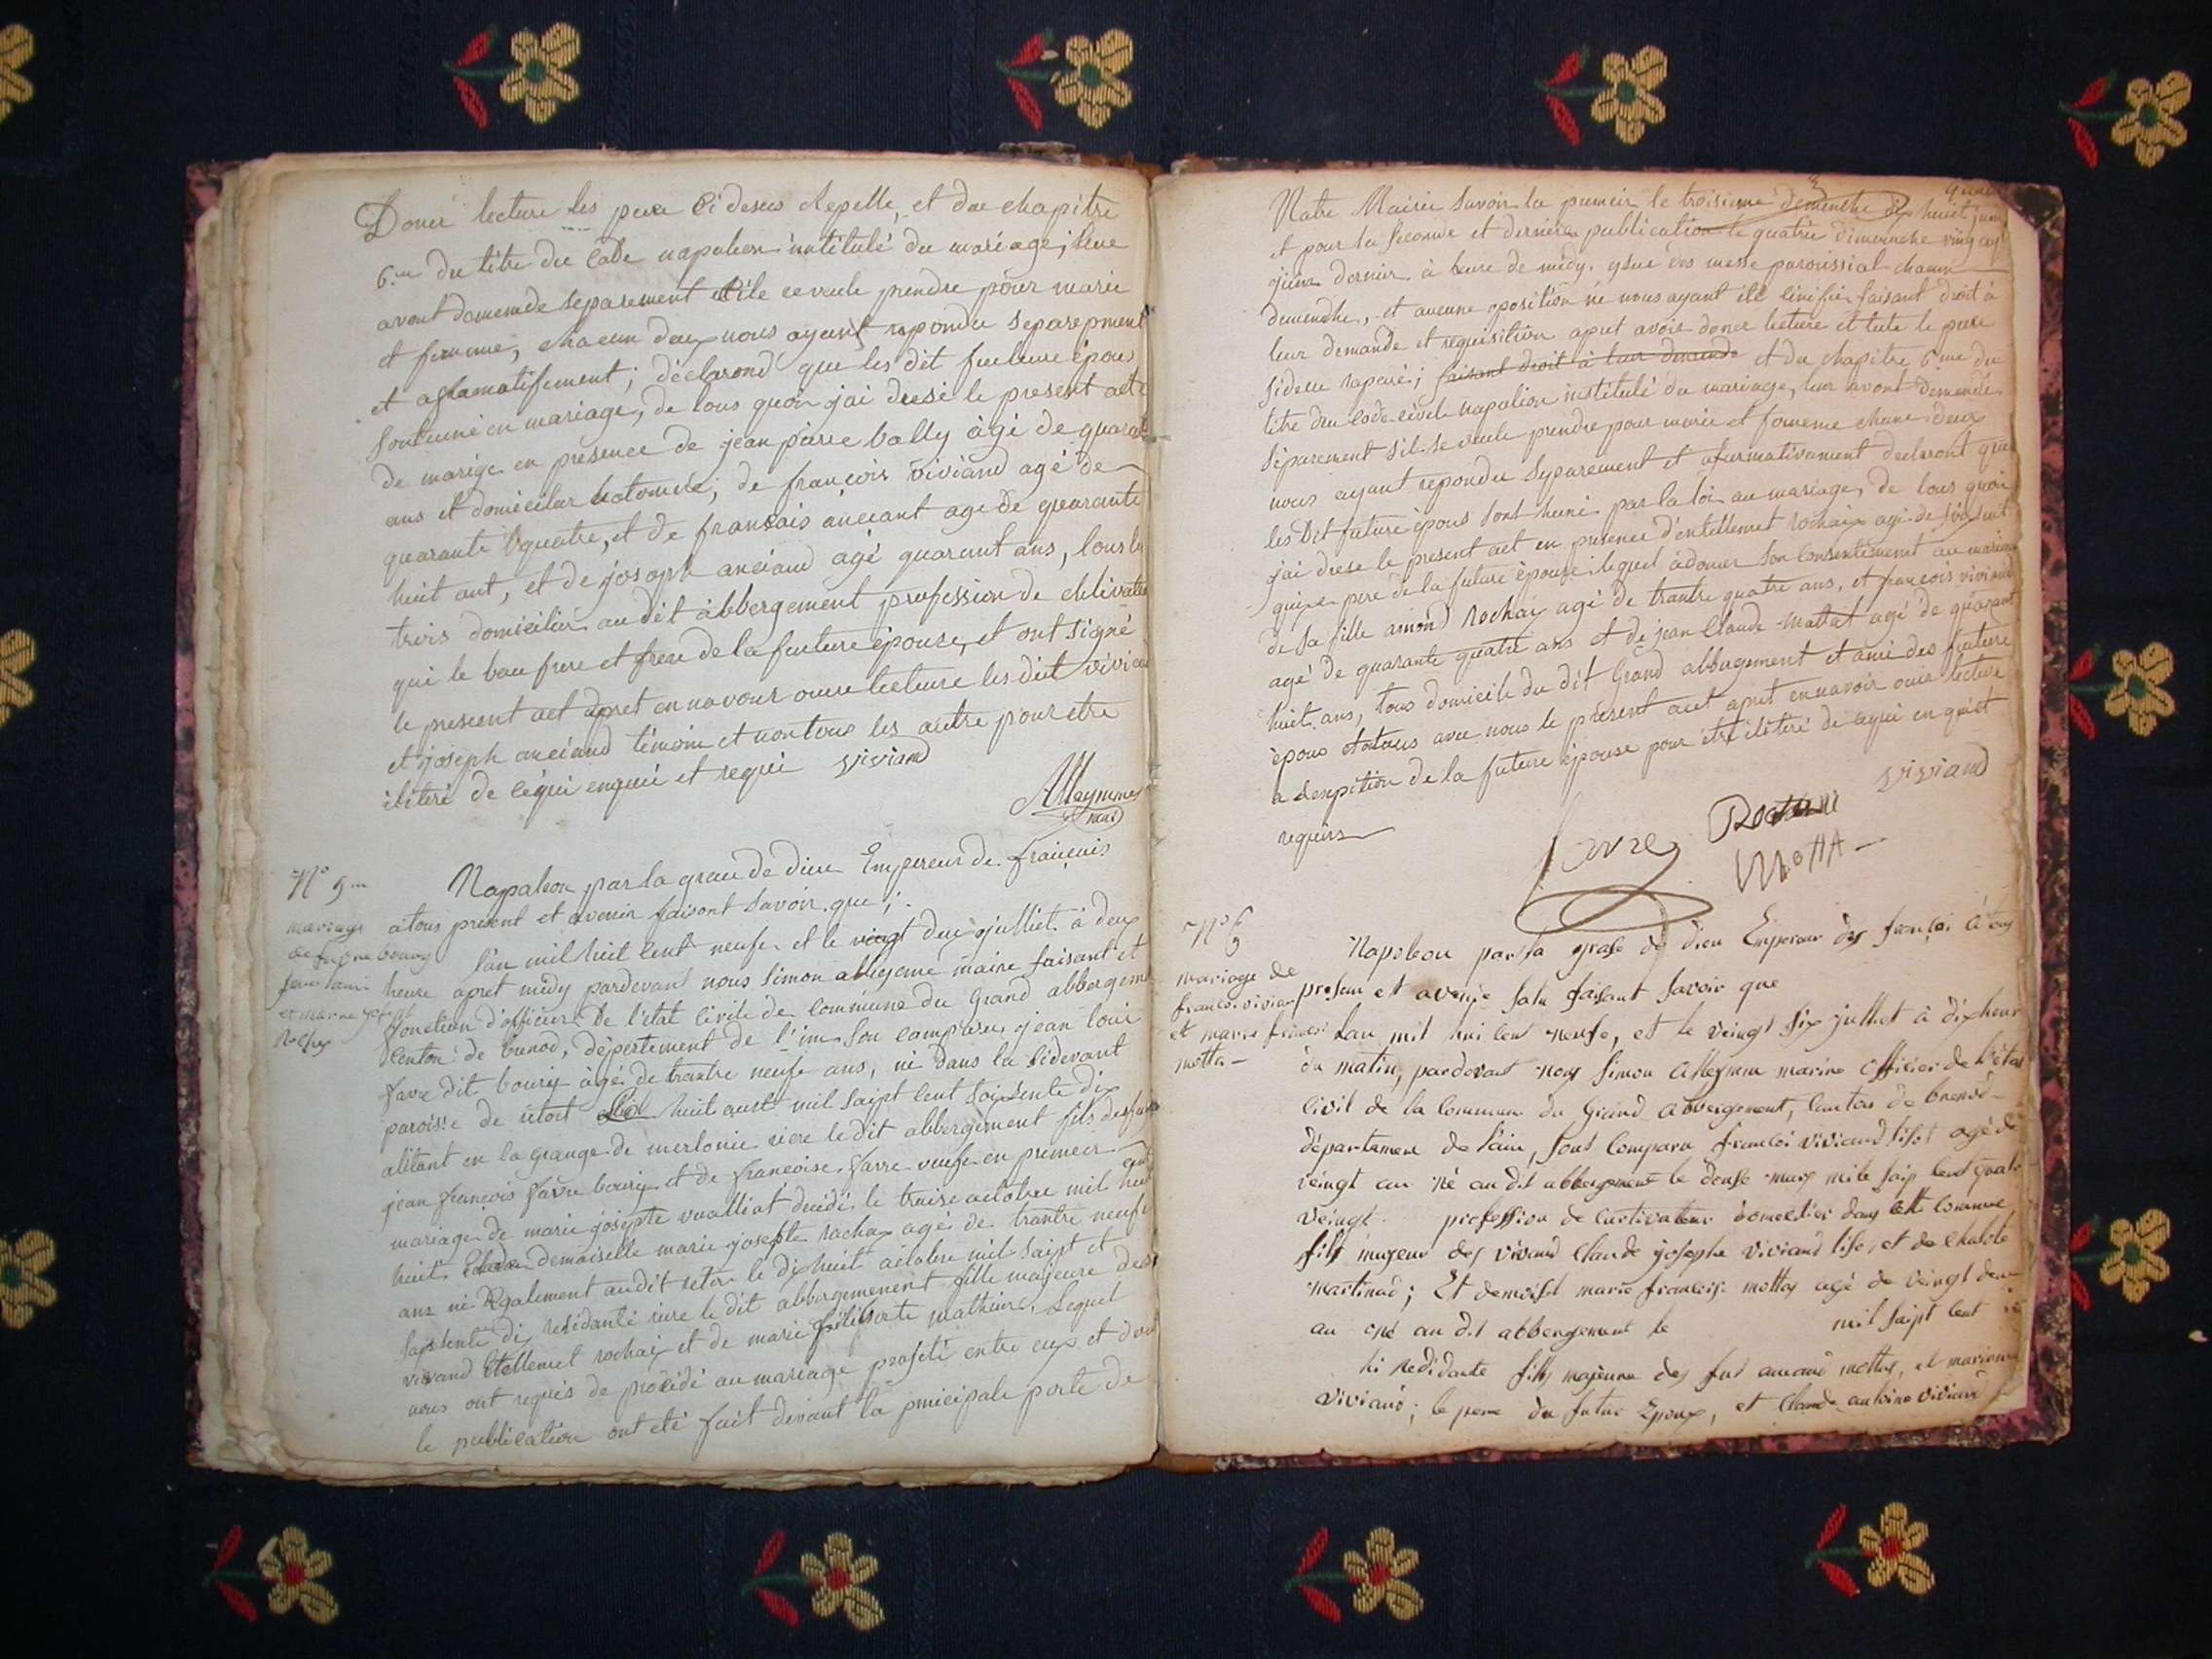 Doner lecture les piece Ci desus Repelle, et du chapitre
6.me du titre du Code napoleon intitulé du mariage; leur
avont demende separement s'ile ce veule prendre pour marie
et femme, chacun deux nous ayant repondu separepment
et afiamatifement; déclarond que les dit future épous
sont unie en mariage, de tous quoi jai dresé le present acte
de marige en présence de jean piere bally âgé de quarante
ans et domicilier hotonne; de françois viviand agé de
quarante quatre, et de français anciant age de quarante
huit ant, et de josoph anciand agé quarant ans, tous les
trois domicilier au dit abbergement profession de cultivateur
qui le bau frere et frere de la future épouse, et ont signé
le present act apret en navoir ouie lecture les dit vivian
et joseph anciand témoin et non tous les autre pour etre
iliteré de ce qui enquié et requi viviand
Alleymme
maire
N° 5me
mariage
favre boury
jean loui
et marie josephte
Rochex
Napoleon par la grace de dieu Empereur de français
a tous present et avenir faisont savoir que;
lan mil huit cent neufe et le vingt deux julliet à deux
heure apret midy pardevant nous simon alleyeme maire faisant et
fonction d'officier de l'etat civile de commune du Grand abbergement
Canton de brenod, département de l'im son comparu jean loui
favre dit boury âgé de trantre neufe ans, né dans la cidevant
paroisse de retort huit aust mil saipt cent soisente dix
abitant en la grange de merlonie riere le dit abbergement fils des feus
jean françois favre boury et de francoise favre veufe en premeer
mariage de marie josepte vualliat decedé le traise octobre mil huit cent
huit demoiselle marie josepte rochax agé de trantre neufe
ans né Egalement audit retor le dixhuit octobre mil saipt et
soissente dix residante riere le dit abbergemenent fille majeure des
vivand Etellemet rochaix et de marie mathieu, lequel
nous ont requis de procédé au mariage projeté entre eux et dont
le publication ont eté fait devant la princcipale porte de
Notre Mairie Savoir la premeir le troisieme dimenche dix huit juin
et pour la seconde et derniere publication le quatrie dimenche vingt cinq
juin dernier à heure de midy. ysue des messe paroissial chacun
demenche, et aucune oposition ne nous ayant ité sinifié faisant droit à
leur demande et requisition apret avoir doner lecture et tute le piece
sidesue raporé; faisant droit à leur demende et du chapitre 6me du
titre du Code civile napolion institulé du mariage, leur avont demende
séparement s'il se veule prendre pour marie et fameme chaune deux
nous ayant repondu separement et afirmativament declaront que
les dit future épous sont huni par la loi au mariage, de tous quoi
jai drese le present act en presence d'entellemet rochaix agé de soixant
quinze pere de la future épouse lequel à doner son consentement au mariage
de sa fille amond Rochaix agé de trantre quatre ans, et françois viviand
agé de quarante quatre ans et de jean Claude mattat agé de quarant
huit ans, tous domicile du dit Grand abbergement et ami des future
épous avec nous le présent act apret en navoir ouie lecture
a lexpition de la future épouse pour étre iliteré de ce qui enquit
requirs
viviand
favre
Rochaix
MottA
N° 6
mariage de
francoi vivian
et marie françoi
motta
Napoleon par la grase de dieu Empereur des françoi à tous
presen et avenir salu faisant savoir que
Lau mil hui cent neufe, et le veingt six julliet à dix heur
du matin, pardevant nous simon alleymme marine officier de l'état
civil de la commune du Grand abbergement, canton de brenod
département de l'ain, sont comparu francoi viviand lisot agé de
veingt an né au dit abbergement le douse mars mile saip cent quatr
veingt profession de cultivateur domecilier dans cette commune
fils mageur des vivand Claude josephe viviand liso, et de Chalote
martinad; Et demoisel marie francoise mottas agé de veingt deu
an né au dit abbergement le mil saipt cent
hi redidante fills majeune des fut amand mottas, et marianne
viviand; le pere du futur Epoux, et Claude antoine viviand